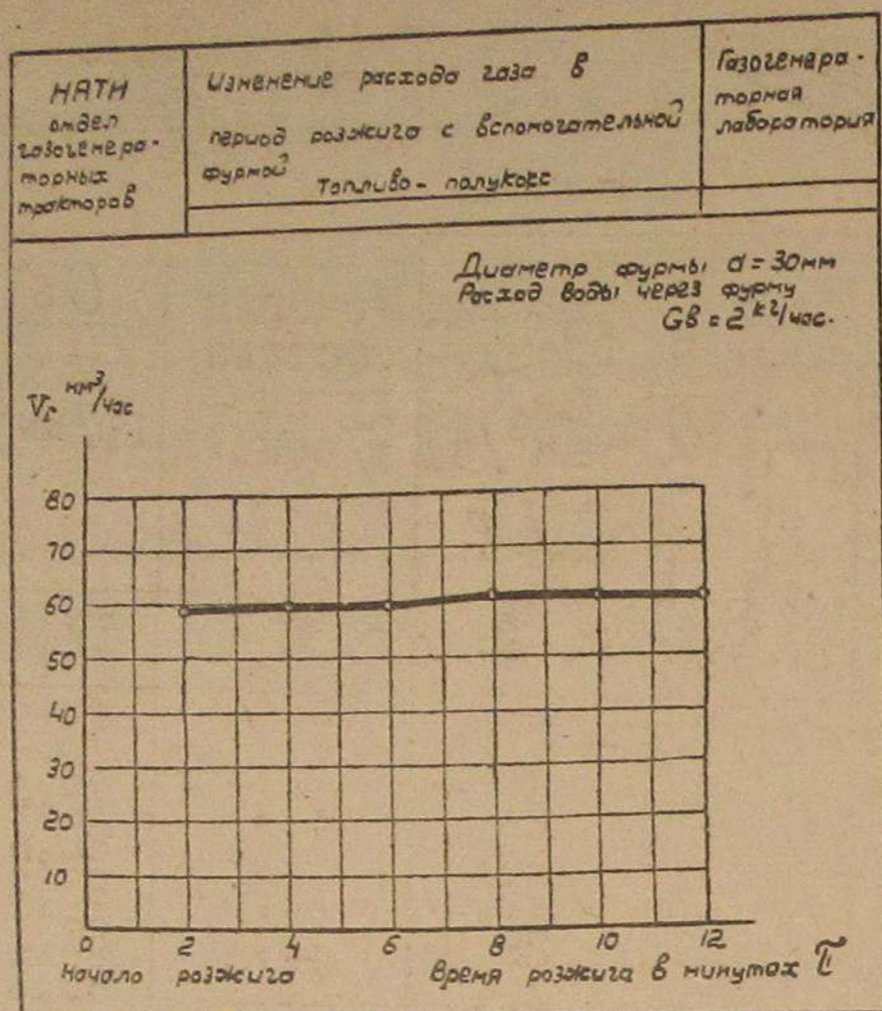 НАТИ
отдел
газогенера-
торных
тракторов
Изменение расхода газа в
период розжига с вспомогательной
фурмой
Топливо - полукокс
Газогенера-
торная
лаборатория
Диаметр фурмы d = 30мм
Расход воды через фурму
Gв = 2 кг/час.
Vг нм³/час
80
70
60
50
40
30
20
10
0 2 4 6 8 10 12
Начало розжига Время розжига в минутах τ